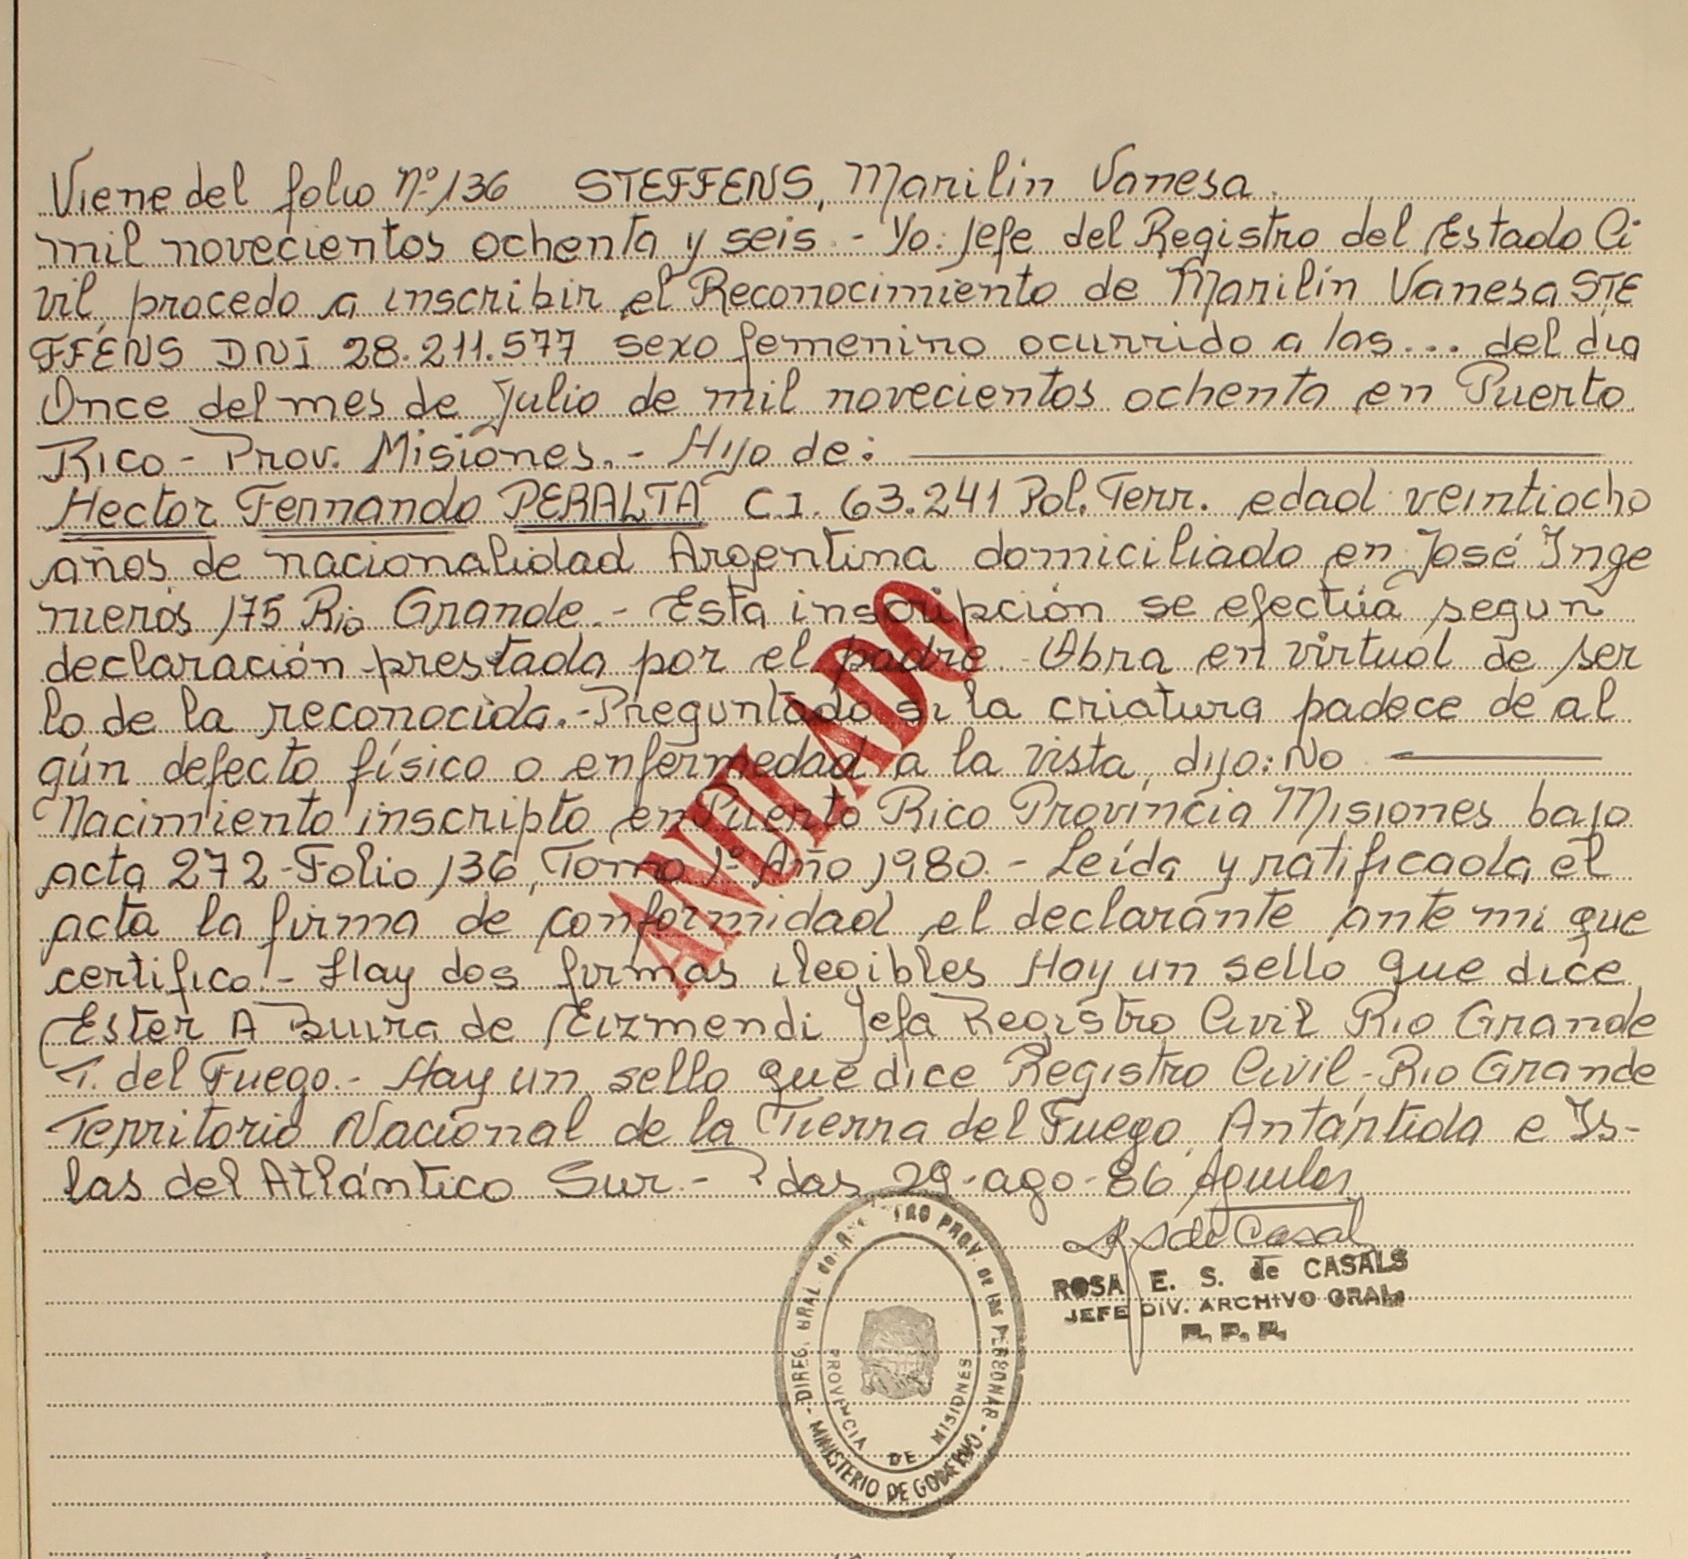 Viene del folio Nº 136 STEFFENS, Marilin Vanesa.
mil novecientos ochenta y seis.- Yo: Jefe del Registro del Estado Ci
vil, procedo a inscribir el Reconocimiento de Marilín Vanesa STE
FFENS DNI 28.211.577 sexo femenino ocurrido a las... del día
Once del mes de Julio de mil novecientos ochenta en Puerto
Rico - Prov. Misiones.- Hijo de:
Hector Fernando PERALTA C.I. 63.241 Pol. Terr. edad veintiocho
años de nacionalidad Argentina domiciliado en José Inge
nieros 175 Rio Grande.- Esta inscripción se efectúa segun
declaración prestada por el padre. Obra en virtud de ser
lo de la reconocida.- Preguntado si la criatura padece de al
gún defecto físico o enfermedad a la vista, dijo: No
Nacimiento inscripto en Puerto Rico Provincia Misiones bajo
acta 272 - Folio 136, Tomo 1º Año 1980.- Leída y ratificada el
acta la firma de conformidad el declarante ante mi que
certifico.- Hay dos firmas ilegibles Hay un sello que dice
Ester A de Eizmendi Jefa Registro Civil Rio Grande
T. del Fuego.- Hay un sello que dice Registro Civil - Rio Grande
Territorio Nacional de la Tierra del Fuego, Antártida e Is-
las del Atlántico Sur.- Pdas, 29-ago-86
ANULADO
ROSA E. S. de CASALS
JEFE DIV. ARCHIVO GRAL.
R. P. P.
PROVINCIA DE MISIONES
MINISTERIO DE GOBIERNO